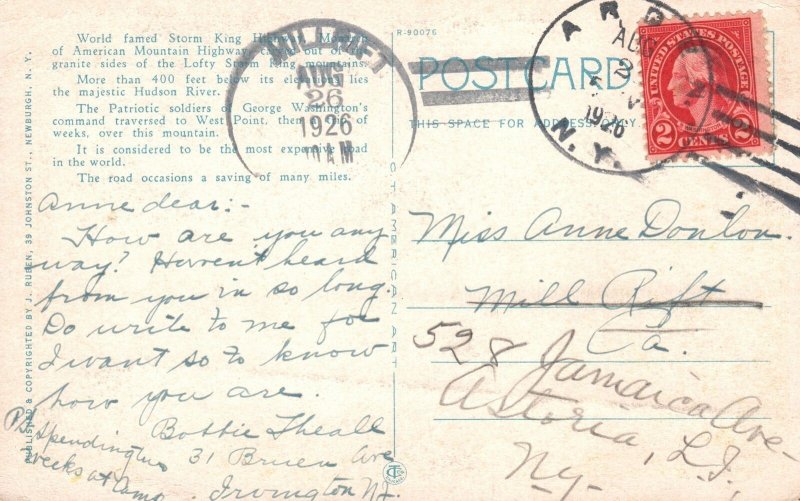 World famed Storm King Highway,
of American Mountain Highway, out of
granite sides of the Lofty Storm King mountains.
More than 400 feet below its elevations lies
the majestic Hudson River.
The Patriotic soldiers of George Washington's
command traversed to West Point, then a of
weeks, over this mountain.
It is considered to be the most expensive road
in the world.
The road occasions a saving of many miles.
MILL RIFT
AUG
26
1926
AM
R-90076
POSTCARD
THIS SPACE FOR ADDRESS ONLY
AUG
2
1926
N.Y.
UNITED STATES POSTAGE
2 CENTS 2
PUBLISHED & COPYRIGHTED BY J. RUBEN, 39 JOHNSTON ST., NEWBURGH, N. Y.
C T AMERICAN ART
Anne dear:-
How are you any
way? Haven't heard
from you in so long.
Do write to me for
I want so to know
how you are.
Bobbie Theall
31 Bruen Ave
Irvington NJ.
P.S.
Spending two
weeks at Camp
Miss Anne Donlon.
Mill Rift
Pa.
528 Jamaica Ave-
Astoria, L.I.
Ny-